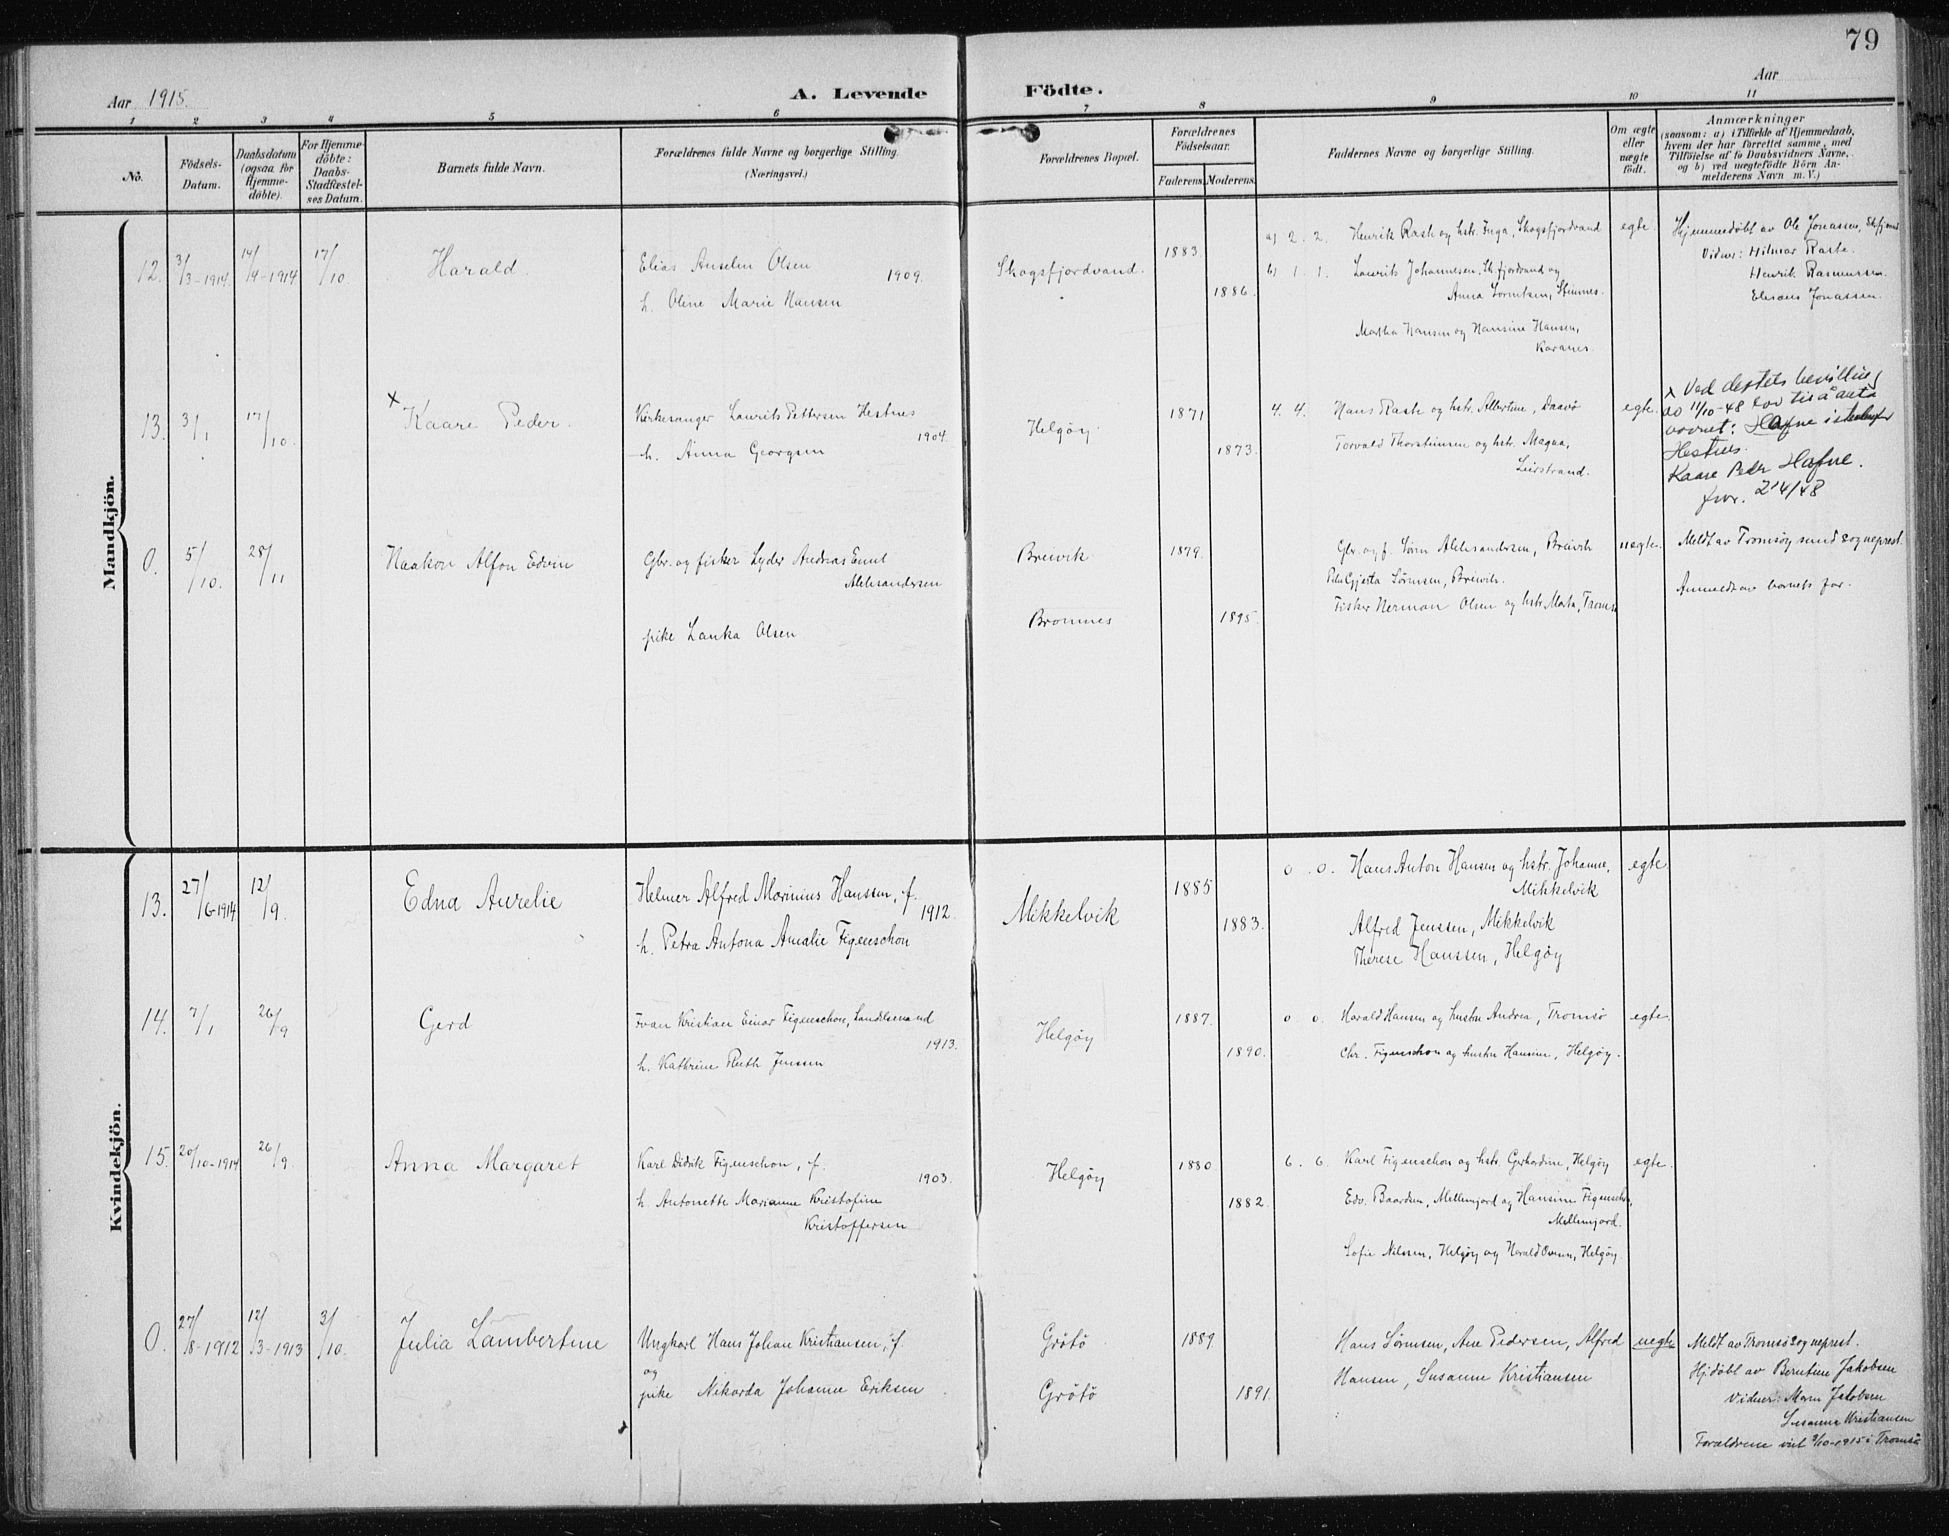 79
Aar 1915.
A. Levende Födte.
Aar
1 2 3 4 5 6 7 8 9 10 11
No.
Födsels-Datum.
Daabsdatum (ogsaa for Hjemme-döbte).
For Hjemme-döbte: Daabs-Stadfæstel-ses Datum.
Barnets fulde Navn.
Forældrenes fulde Navne og borgerlige Stilling.
(Næringsvei.)
Forældrenes Bopæl.
Forældrenes Födselsaar.
Faderens. Moderens.
Faddernes Navne og borgerlige Stilling.
Om ægte eller uægte födt.
Anmærkninger
(saasom: a) i Tilfælde af Hjemmedaab, hvem der har forrettet samme, med Tilföielse af to Daabsvidners Navne, og b) ved uægtefödte Börn An-melderens Navn m. V.)
Mandkjön.
12. 3/3-1914 14/4-1914 17/10. Harald.
Elias Anselm Olsen 1909.
h. Oline Marie Hansen
Skogsfjordvand. 1883. 1886.
a) 2. 2. Henrik Rask og hstr. Inga, Skogsfjordvand
b) 1. 1. Laurits Johannesen, Sk.fjordvand og
Anna Lorentsen, Stennes.
Martha Hansen og Hansine Hansen,
Karanes.
egte.
Hjemmedøbt av Ole Jonassen,
Vidner: Hilmar Raste.
Henrik Rasmussen.
Jonassen.
13. 3/1 17/10. x Kaare Peder.
Kirkesanger Laurits Pettersen Hestnes 1904.
h. Anna Georgsen
Helgøy. 1871 1873.
4. 4. Hans Rask og hstr. Albertine, Daavø
Torvald Thorsteinsen og hstr. Magna,
Leirstrand.
egte.
x Ved dep[tets] bevilling
av 11/10-48 lov til å anta
navnet: Hafne istedenfor
Hestnes.
Kaare Peder Hafne.
214/48
0. 5/10. 28/11 Haakon Alfon Edvin
Gbr. og fisker Lyder Andreas Emil
Aleksandersen
pike Lanka Olsen
Breivik Bromnes 1879. 1895.
Gbr. og f. Sørn Aleksandersen, Breivik
Gjesta Sørnsen, Breivik.
Fisker Herman Olsen og hstr. Marta, Tromsø
uegte.
Meldt av Tromsøysund sogneprest.
Anmeldt av barnets far.
Kvindekjön.
13. 27/6-1914 12/9. Edna Aurelie
Helmer Alfred Marinius Hanssen, f. 1912.
h. Petra Antona Amalie Figenschou
Mikkelvik 1885 1883.
0. 0. Hans Anton Hansen og hstr. Johanne,
Mikkelvik
Alfred Jenssen, Mikkelvik
Therese Hanssen, Helgøy
egte
14. 7/1 26/9 Gerd
Ivan Kristian Einar Figenschou, Landelsmand 1913.
h. Kathrine Ruth Jenssen
Helgøy 1887. 1890.
0. 0. Harald Hansen og hustru Andrea, Tromsø
Chr. Figenschou og hustru Hansine, Helgøy.
egte.
15. 20/10-1914 26/9. Anna Margaret
Karl Didrik Figenschou, f. 1903.
h. Antonette Marianne Kristofine
Kristoffersen
Helgøy 1880 1882.
6. 6. Karl Figenschou og hstr. Gerhardine, Helgøy
Edv. Baardsen, Mellemjord og Hansine Figenschou,
Mellemjord.
Sofie Nilssen, Helgøy og Harald Ovesen, Helgøy.
egte.
0. 27/8-1912 12/3-1913 3/10. Julia Lambertine
Ungkarl Hans Johan Kristiansen, f.
og
pike Nikorda Johanne Eriksen
Grøtø Grøtø 1889 1891.
Hans Sørnsen, Ane Pedersen, Alfred
Hansen, Susanne Kristiansen
uegte
Meldt av Tromsø sogneprest.
Hj.døbt av Berntine Jakobsen
Vidner: Jakobsen
Susanna Kristiansen
Forældrene viet 3/10-1915 i Tromsø